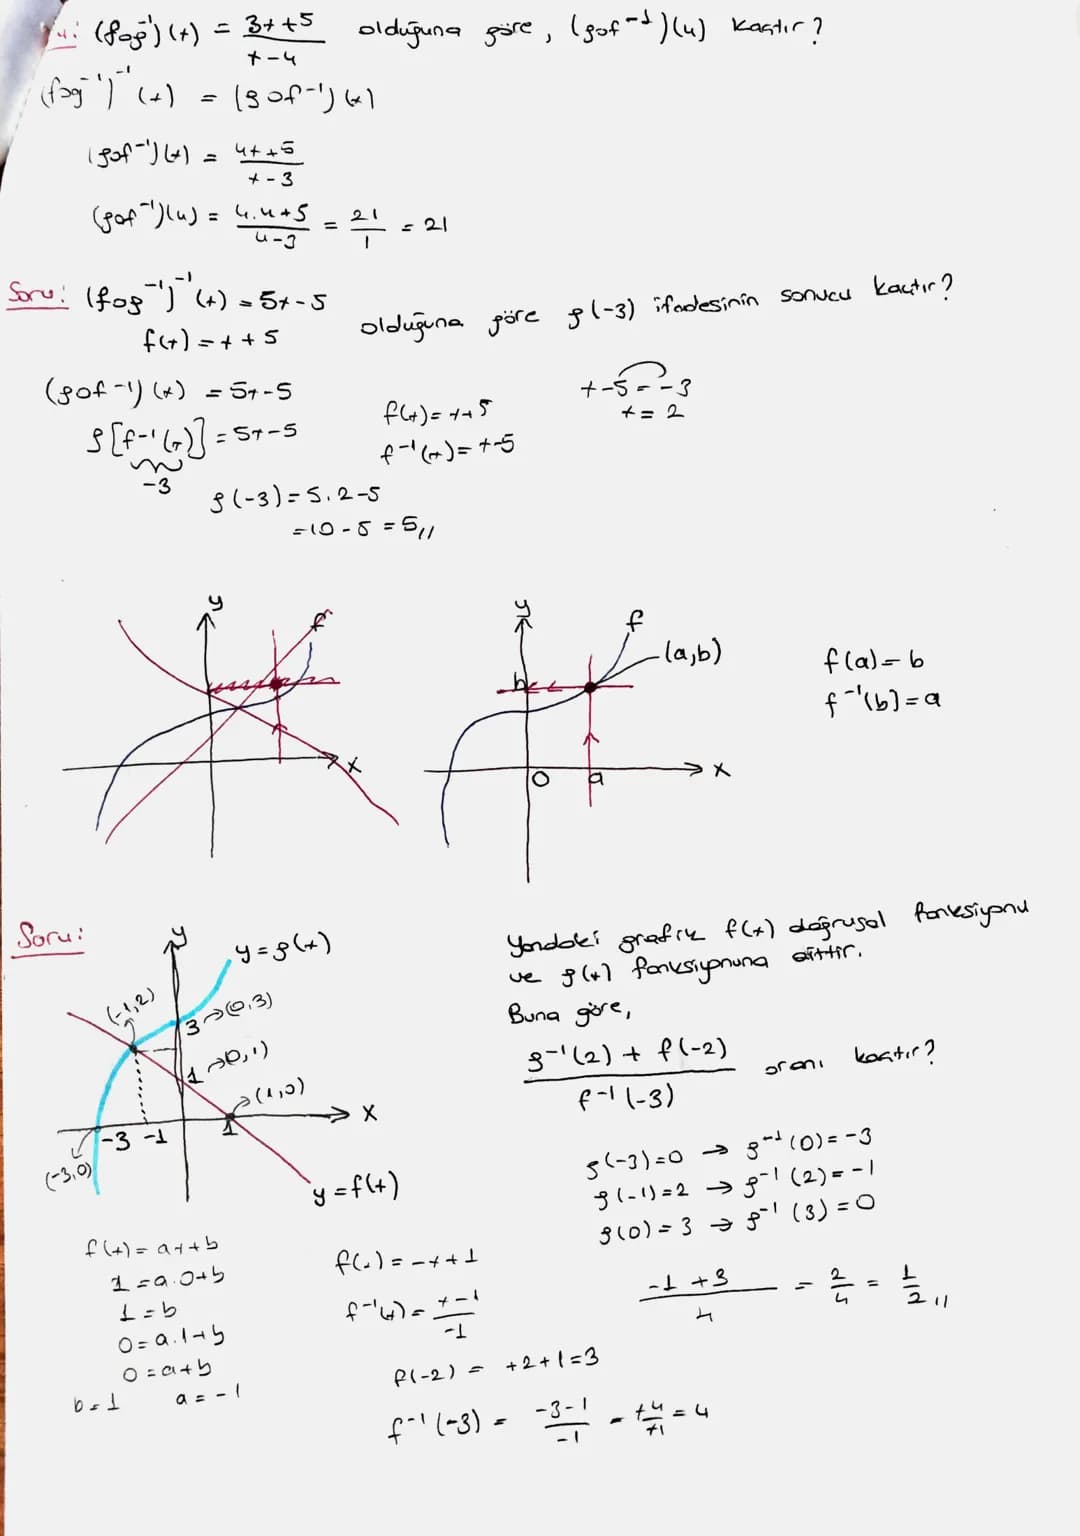 (fog⁻¹)(x) = 3x+5 / x-4 olduğuna göre, (gof⁻¹)(4) kaçtır?
(fog⁻¹)⁻¹(x) = (gof⁻¹)(x)
(gof⁻¹)(x) = 4x+5 / x-3
(gof⁻¹)(4) = 4.4+5 / 4-3 = 21 / 1 = 21
Soru: (fog⁻¹)⁻¹(x) = 5x-5
f(x) = x+5 olduğuna göre g(-3) ifadesinin sonucu kaçtır?
(gof⁻¹)(x) = 5x-5
g[f⁻¹(x)] = 5x-5
-3
f(x) = x+5
f⁻¹(x) = x-5
x-5 = -3
x = 2
g(-3) = 5.2-5
= 10-5 = 5//
y f x
y f (a,b) b O a x
f(a) = b
f⁻¹(b) = a
Soru:
y
y = g(x)
(-1,2)
3 → (0,3)
1 → (0,1)
(1,0)
-3 -1 1 x
(-3,0)
y = f(x)
Yandaki grafik f(x) doğrusal fonksiyonu
ve g(x) fonksiyonuna aittir.
Buna göre,
g⁻¹(2) + f(-2) / f⁻¹(-3) oranı kaçtır?
g(-3)=0 → g⁻¹(0) = -3
g(-1)=2 → g⁻¹(2) = -1
g(0) = 3 → g⁻¹(3) = 0
-1+3 / 4 = 2/4 = 1/2 //
f(x) = ax+b
1 = a.0+b
1 = b
0 = a.1+b
0 = a+b
b=1 a = -1
f(x) = -x+1
f⁻¹(x) = x-1 / -1
f(-2) = +2+1 = 3
f⁻¹(-3) = -3-1 / -1 = +4 / +1 = 4